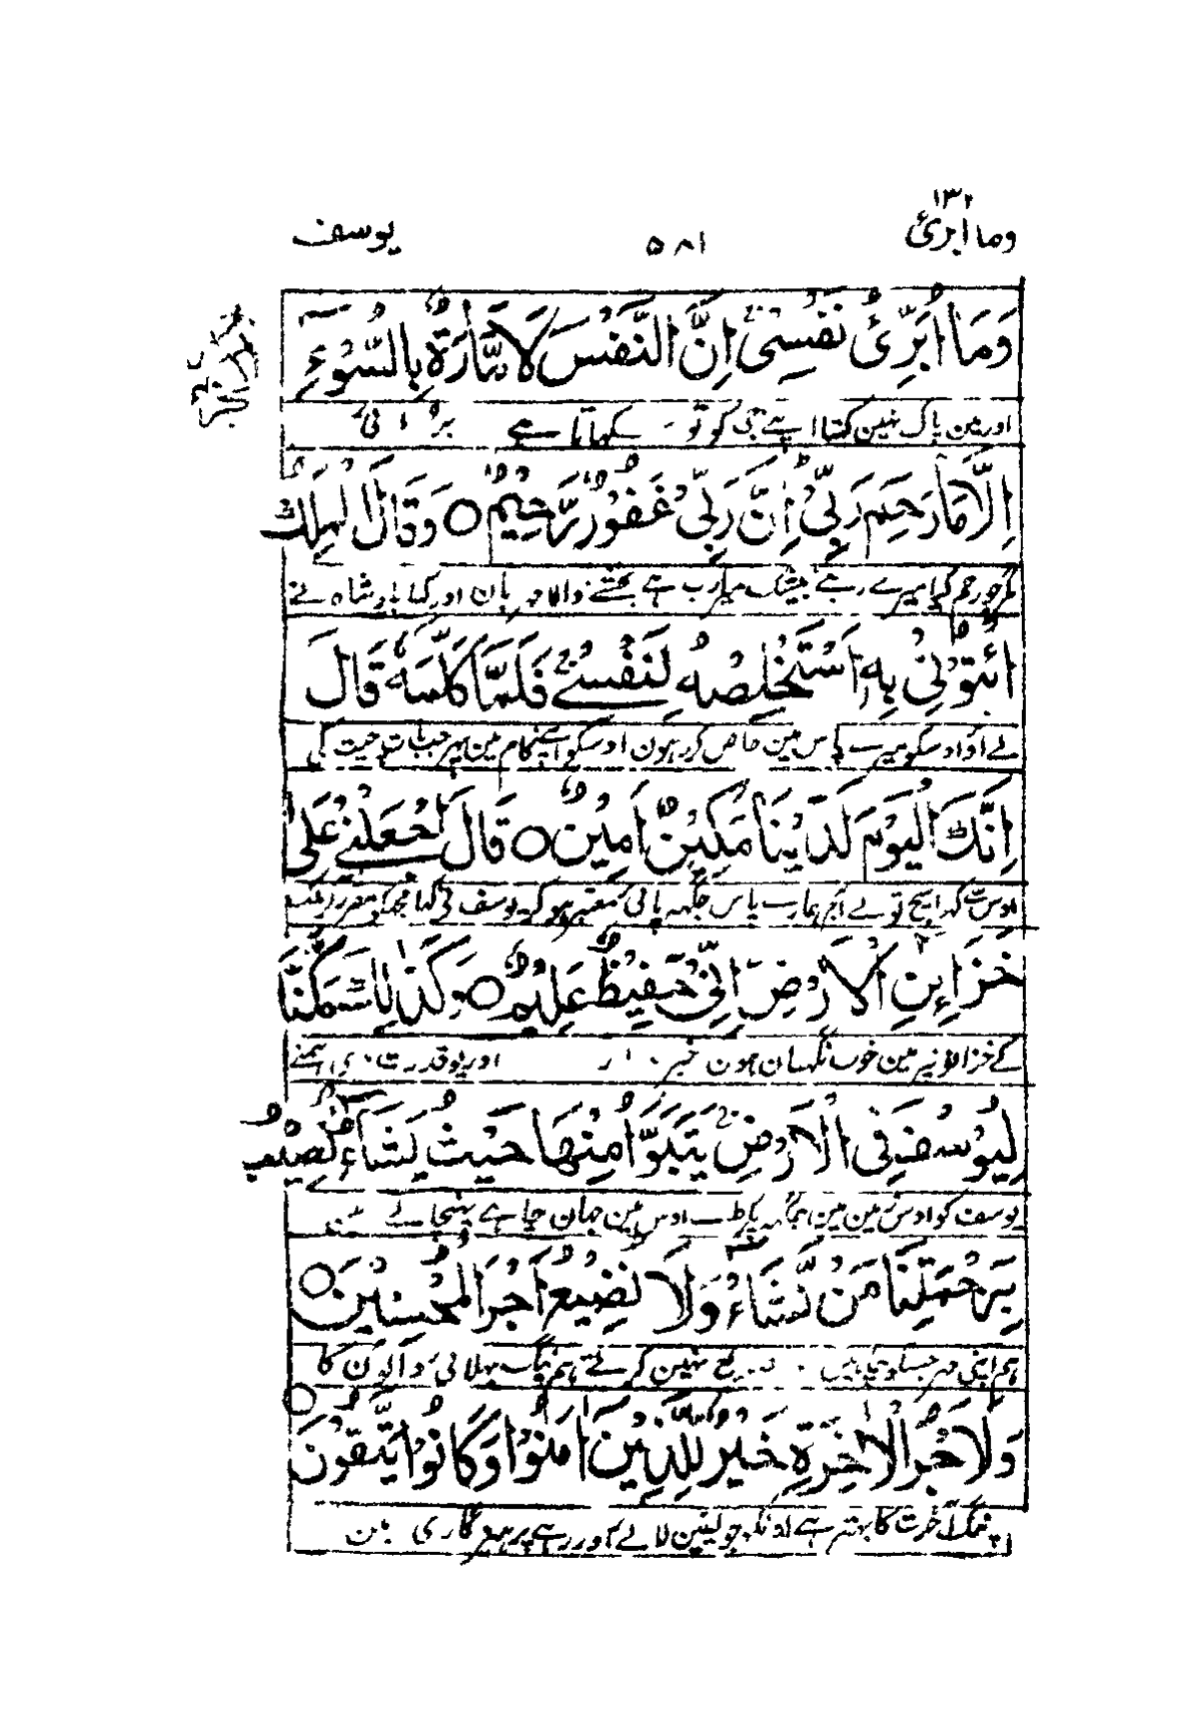 ۱۳
وما ابرئ ۵۸۱ یوسف
وَمَا أُبَرِّئُ نَفْسِي إِنَّ النَّفْسَ لَأَمَّارَةٌ بِالسُّوءِ
اور مین پاک نہین کہتا اپنے جی کو تو سکہاتا ہے
إِلَّا مَا رَحِمَ رَبِّي إِنَّ رَبِّي غَفُورٌ رَّحِيمٌ ○ وَقَالَ الْمَلِكُ
مگر جو رحم کیا میرے رب نے بیشک میرا رب ہے بخشنے والا مہربان اور کہا بادشاہ نے
ائْتُونِي بِهِ أَسْتَخْلِصْهُ لِنَفْسِي فَلَمَّا كَلَّمَهُ قَالَ
لے آؤ اوسکو میرے پاس مین خاص کر رہون اوسکو اپنے کام مین پہر جب بات چیت کی
إِنَّكَ الْيَوْمَ لَدَيْنَا مَكِينٌ أَمِينٌ ○ قَالَ اجْعَلْنِي عَلَىٰ
کہا آج تو نے ہمارے پاس جگہہ پائی معتبر ہو کر یوسف نے کہا مجہکو مقرر کر ملک
خَزَائِنِ الْأَرْضِ إِنِّي حَفِيظٌ عَلِيمٌ ○ وَكَذَٰلِكَ مَكَّنَّا
کے خزانونپر مین خوب نگہبان ہون اور یون قدرت دی ہمنے
لِيُوسُفَ فِي الْأَرْضِ يَتَبَوَّأُ مِنْهَا حَيْثُ يَشَاءُ نُصِيبُ
یوسف کو اوس زمین مین جگہہ پکڑے اوس مین جہان چاہے پہنچاتے
بِرَحْمَتِنَا مَن نَّشَاءُ وَلَا نُضِيعُ أَجْرَ الْمُحْسِنِينَ ○
ہم اپنی مہر جسکو چاہین نہین کرتے ہم نیگ بہلائی والون کا
وَلَأَجْرُ الْآخِرَةِ خَيْرٌ لِّلَّذِينَ آمَنُوا وَكَانُوا يَتَّقُونَ ○
نیگ آخرت کا بہتر ہے اونکو جو یقین لائے اور رہے پرہیزگاری مین